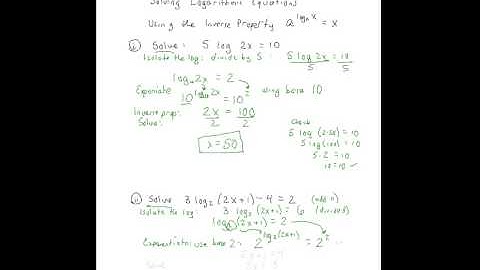 Solving Logarithmic Equations
Using the Inverse Property a^log_a x = x
i) Solve: 5 log 2x = 10
Isolate the log: divide by 5: 5 log 2x / 5 = 10 / 5
log₁₀ 2x = 2
Exponiate 10^log₁₀ 2x = 10^2 using base 10.
Inverse prop: 2x / 2 = 100 / 2
Solve:
x = 50
Check
5 log (2·50) = 10
5 log (100) = 10
5·2 = 10
10 = 10 ✓
ii) Solve 3 log₂ (2x+1) - 4 = 2 (add 4)
Isolate the log: 3 log₂ (2x+1) = 6 (divide 3)
log₂ (2x+1) = 2
use base 2: 2^log₂(2x+1) = 2^2